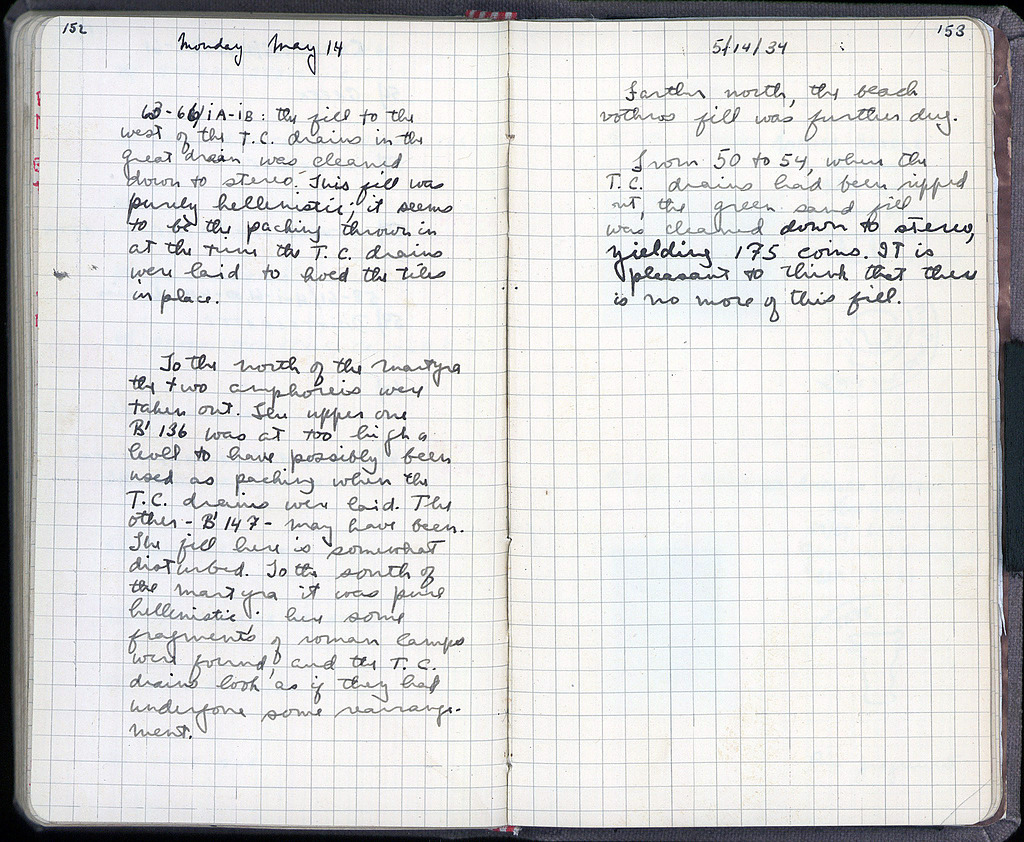 152
Monday May 14
63-66/iA-iB: the fill to the
west of the T.C. drains in the
great drain was cleaned
down to stereo. This fill was
purely hellenistic; it seems
to be the packing thrown in
at the time the T.C. drains
were laid to hold the tiles
in place.
To the north of the martyra
the two amphoreis were
taken out. The upper one
B' 136 was at too high a
level to have possibly been
used as packing when the
T.C. drains were laid. The
other - B' 147 - may have been.
The fill here is somewhat
disturbed. To the south of
the martyra it was pure
hellenistic; here some
fragments of roman lamps
were found, and the T.C.
drains look as if they had
undergone some rearrange-
ment.
153
5/14/34
Farther north, the beach
vothros fill was further dug.
From 50 to 54, where the
T.C. drains had been ripped
out, the green sand fill
was cleaned down to stereo,
yielding 175 coins. It is
pleasant to think that there
is no more of this fill.